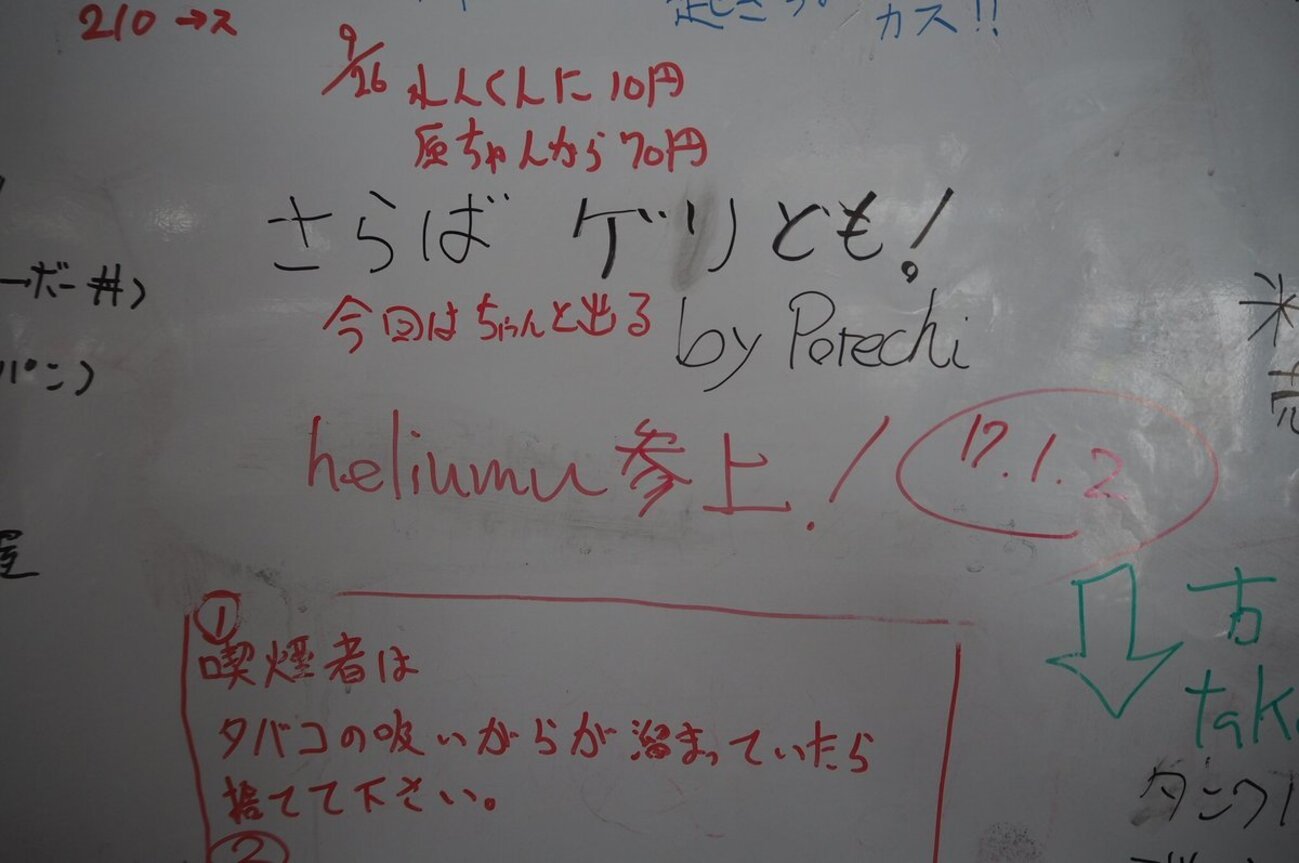 210→ス
カス!!
9/26 れんくんに10円
原ちゃんから70円
さらば ゲリども!
今回はちゃんと出る
by Potechi
heliumu 参上!
17.1.2
①
喫煙者は
タバコの吸いがらが溜まっていたら
捨てて下さい。
②